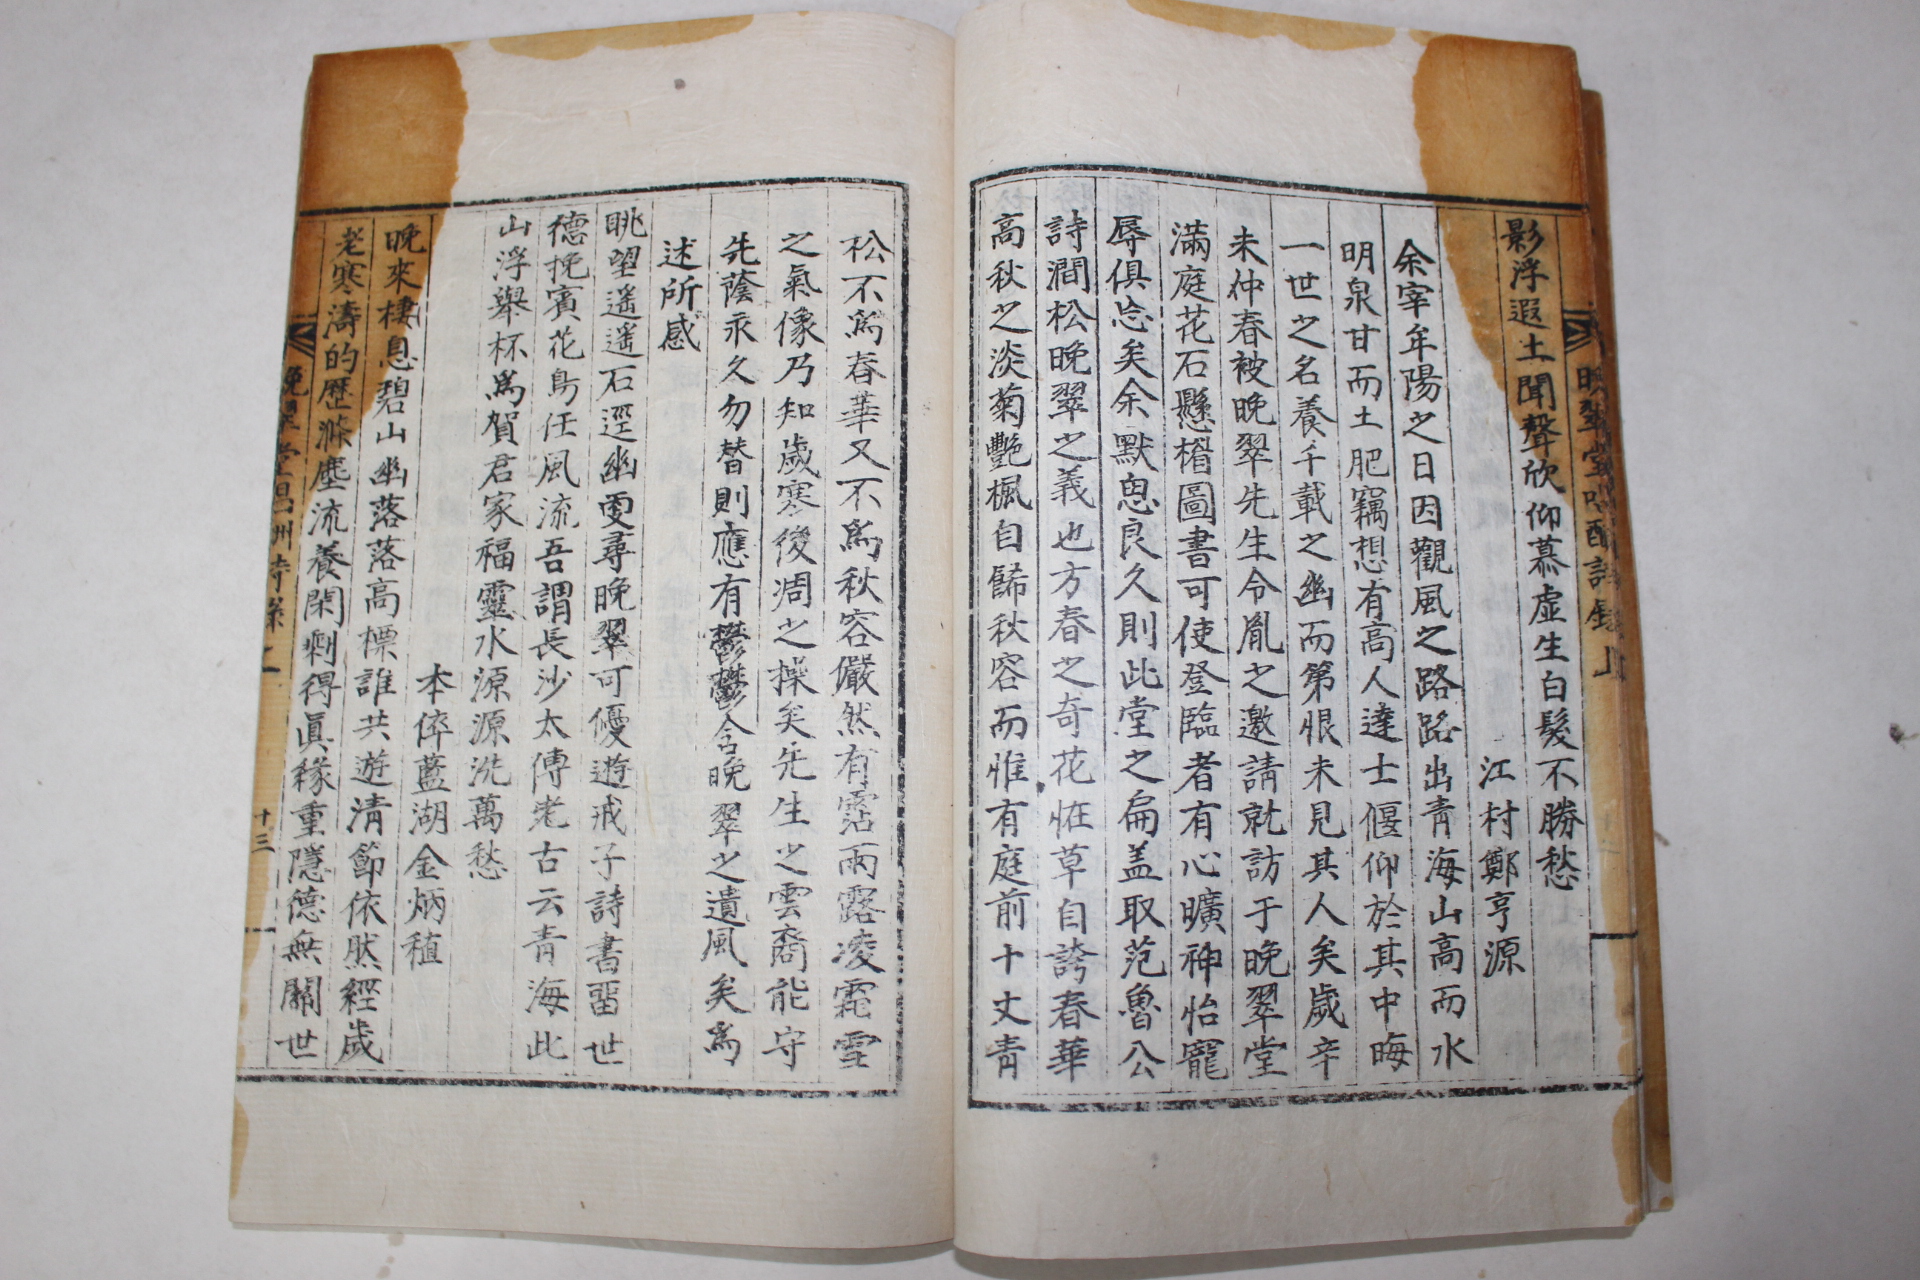 影浮遐土聞聲欣仰慕虛生白髮不勝愁
江村鄭亨源
余宰年陽之日因觀風之路路出靑海山高而水
明泉甘而土肥竊想有高人達士偃仰於其中晦
一世之名養千載之幽而第恨未見其人矣歲辛
未仲春被晩翠先生令胤之邀請就訪于晩翠堂
滿庭花石懸楣圖書可使登臨者有心曠神怡寵
辱俱忘矣余默思良久則此堂之扁盖取范魯公
詩澗松晩翠之義也方春之奇花恠草自誇春華
高秋之淡菊艷楓自餙秋容而惟有庭前十丈靑
松不爲春華又不爲秋容儼然有霑雨露凌霜雪
之氣像乃知歲寒後凋之操矣先生之雲裔能守
先蔭永久勿替則應有鬱鬱含晩翠之遺風矣爲
述所感
眺望遥遥石逕幽更尋晩翠可優遊戒子詩書畱世
德挽賓花鳥任風流吾謂長沙太傅老古云靑海此
山浮舉杯爲賀君家福靈水源源洗萬愁
本倅藍湖金炳稙
晩來棲息碧山幽落落高標誰共遊淸節依然經歲
老寒濤的歷滌塵流養閑剩得眞緣重隱德無關世
晩翠堂
十三